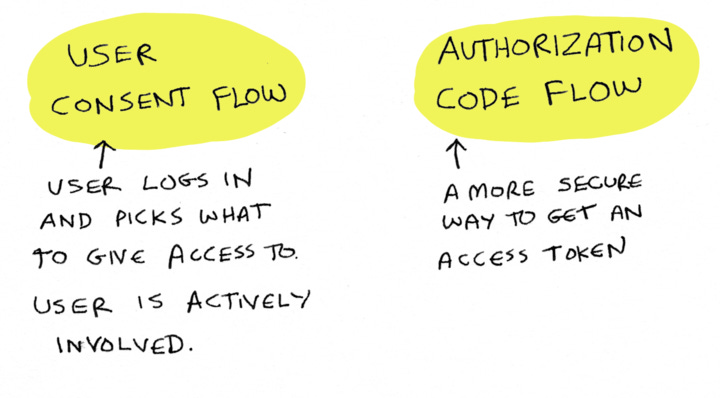 USER
CONSENT FLOW
USER LOGS IN
AND PICKS WHAT
TO GIVE ACCESS TO.
USER IS ACTIVELY
INVOLVED.
AUTHORIZATION
CODE FLOW
A MORE SECURE
WAY TO GET AN
ACCESS TOKEN